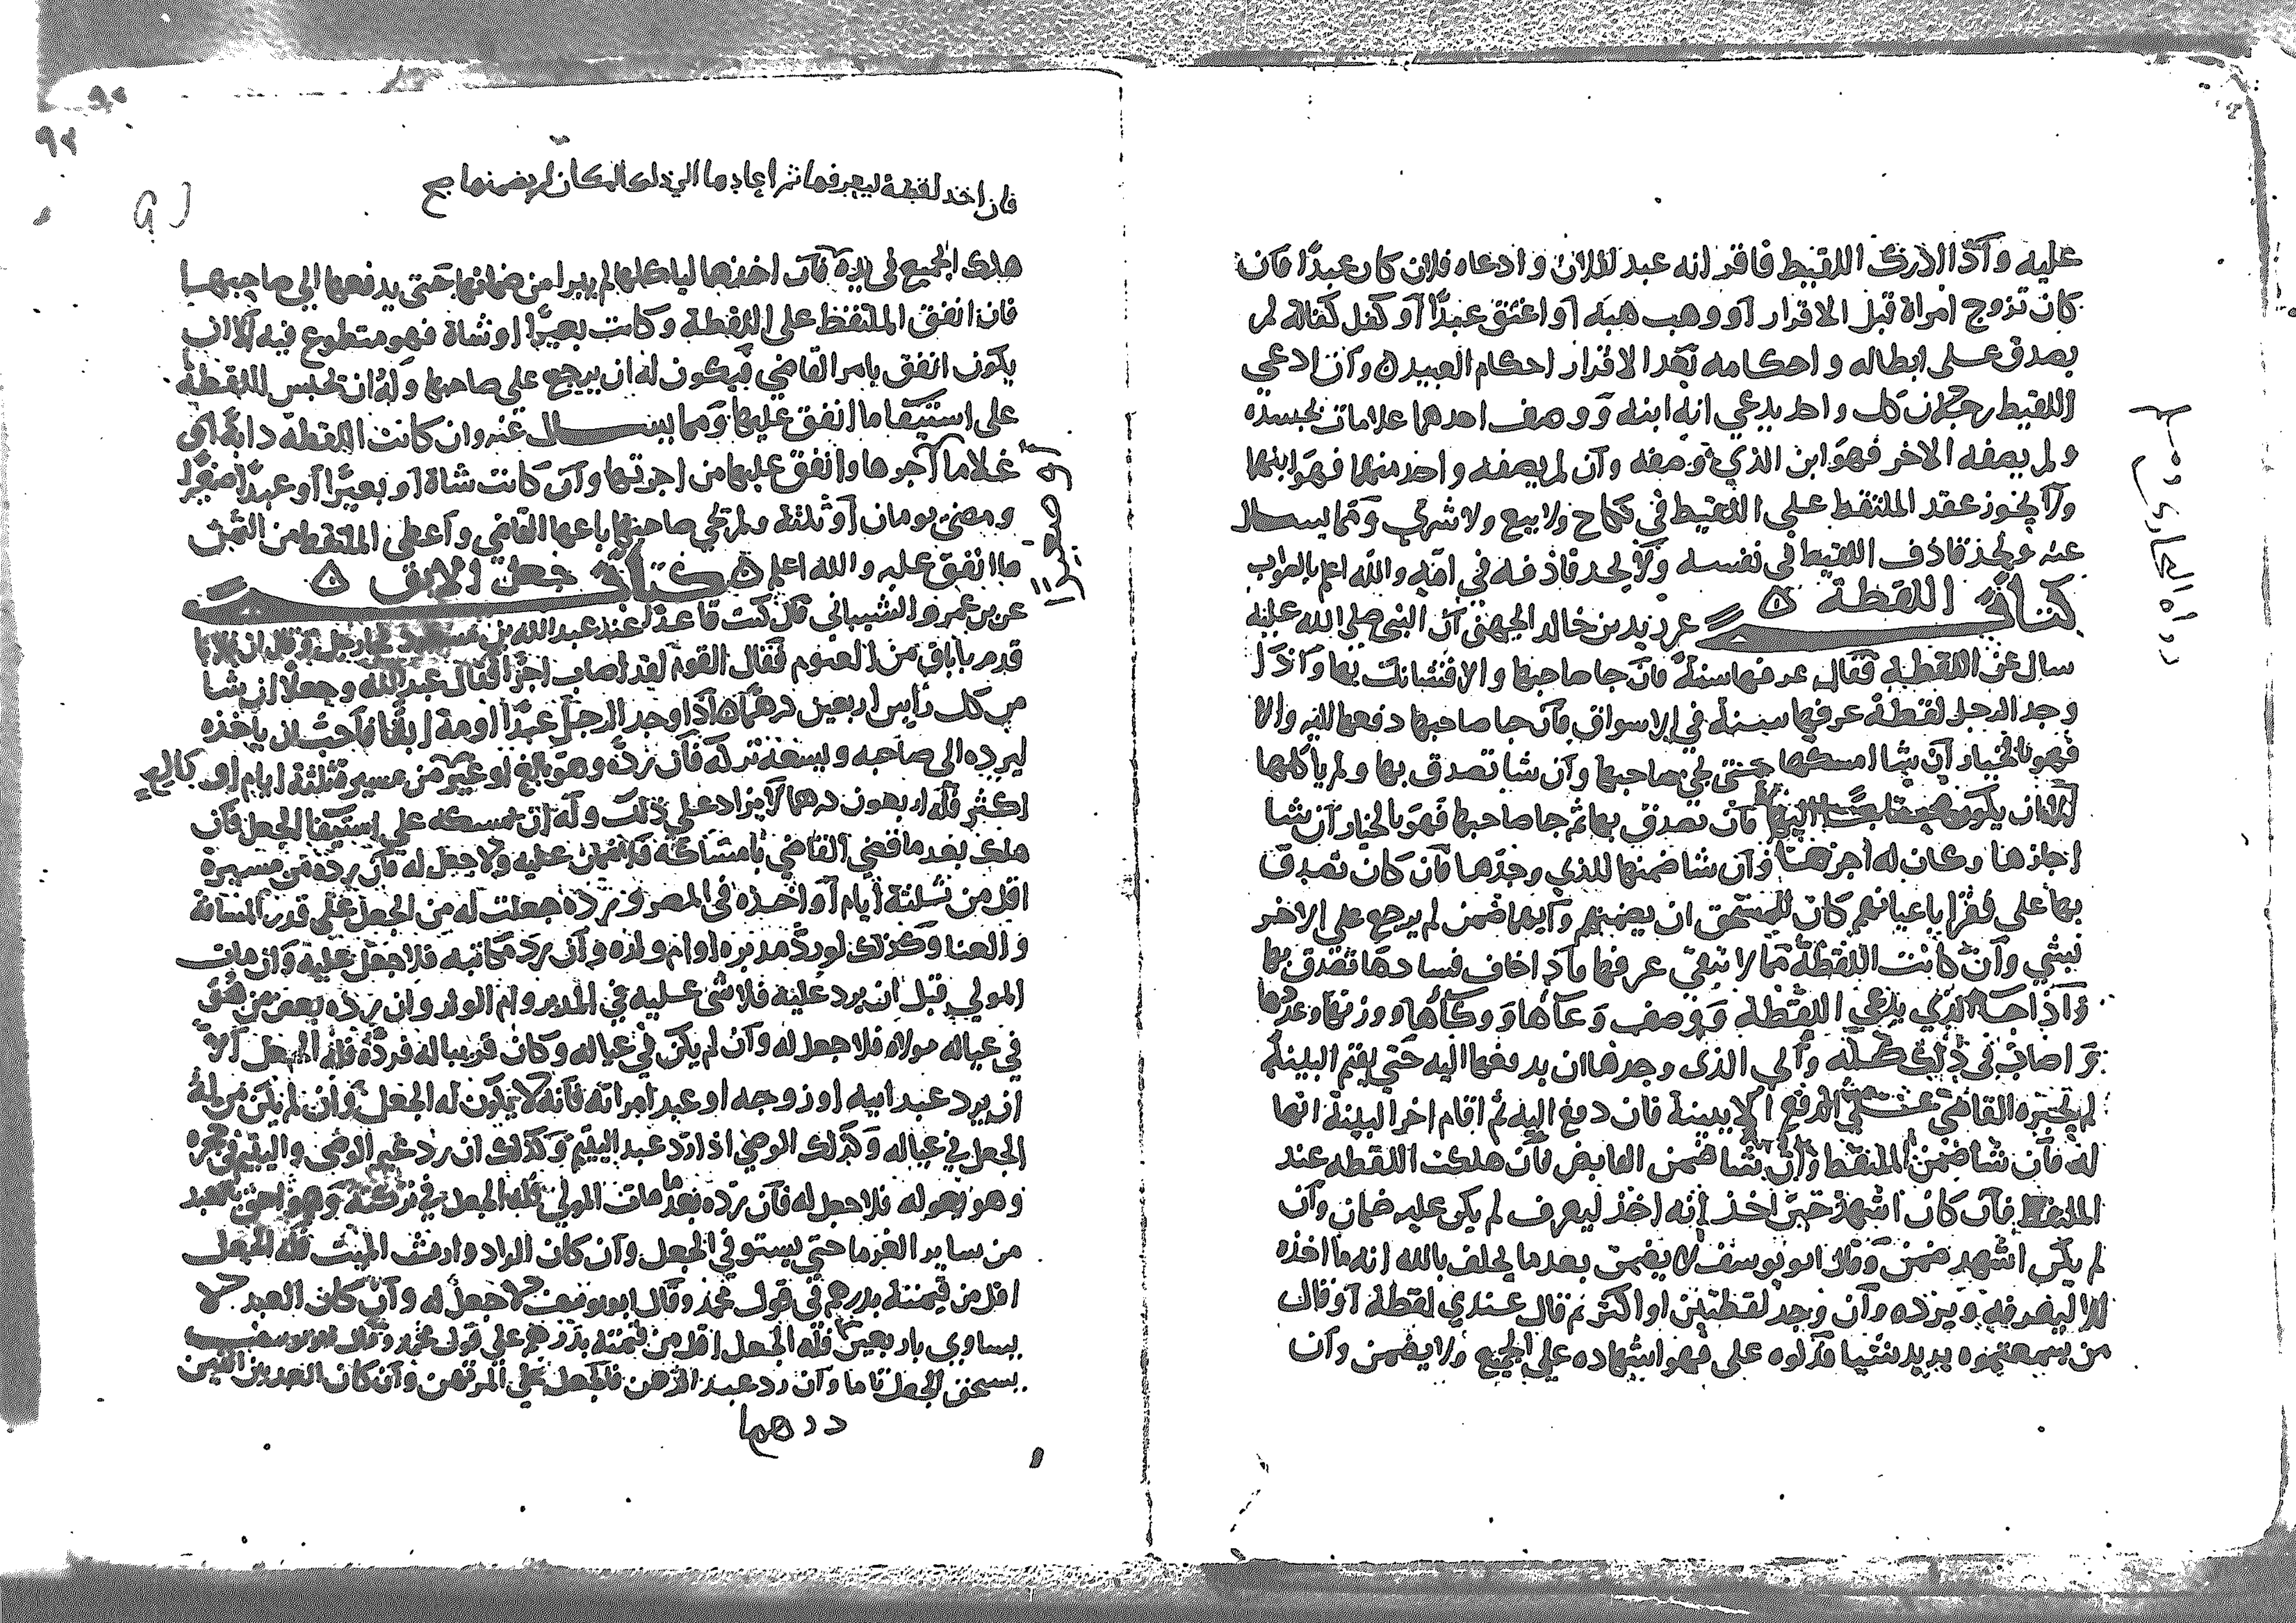 عليه واذا ادرك اللقيط فاقر انه عبد لفلان وادعاه فلان كان عبدًا فان
كان تزوج امراة قبل الاقرار او وهب هبه او اعتق عبدًا او كفل كفالة لم
يصدق على ابطاله واحكامه بعد الاقرار احكام العبيد وان ادعي
اللقيط رجلان كل واحد يدعي انه ابنه ووصف احدهما علامات بجسده
ولم يصفه الاخر فهو ابن الذي وصفه وان لم يصفه واحد منهما فهو ابنهما
ولا يجوز عقد الملتقط على اللقيط في نكاح ولا بيع ولا شرى ومما يسال
عنه ويحد قاذف اللقيط في نفسه ولا يحد قاذفه في امه والله اعلم بالصواب
كتاب اللقطة عن زيد بن خالد الجهني ان النبي صلى الله عليه
سال عن اللقطة فقال عرفها سنة فان جا صاحبها والا فشانك بها واذا
وجد الرجل لقطة عرفها سنة في الاسواق فان جا صاحبها دفعها اليه والا
فهو بالخيار ان شا امسكها حتى يجي صاحبها وان شا تصدق بها ولم ياكلها
الا ان يكون محتاجًا اليها فان تصدق بها ثم جا صاحبها فهو بالخيار ان شا
اجازها وكان له اجرها وان شا ضمنها للذي وجدها فان كان تصدق
بها على فقرا باعيانهم كان للمستحق ان يضمنهم وايهما ضمن لم يرجع على الاخر
بشي وان كانت اللقطة مما لا تبقى عرفها فاذا خاف فسادها تصدق بها
واذا جا الذي يدعي اللقطة ووصف وعاها ووكاها ووزنها وعددها
واصاب في ذلك كله وابي الذى وجدها ان يدفعها اليه حتى يقيم البينة
لم يجبره القاضي على الدفع الا ببينة فان دفع اليه ثم اقام اخر البينة انها
له فان شا ضمن الملتقط وان شا ضمن القابض فان هلكت اللقطه عند
الملتقط فان كان اشهد حين اخذ انه اخذ ليعرف لم يكن عليه ضمان وان
لم يكن اشهد ضمن وقال ابو يوسف لا يضمن بعد ما يحلف بالله انه ما اخذه
الا ليعرفه ويرده وان وجد لقطتين او اكثر ثم قال عندي لقطة او قال
من سمعتموه يريد شيا فدلوه على فهو اشهاده على الجميع ولا يضمن وان
فان اخذ لقطة ليعرفها ثم اعادها الى ذلك المكان لم يضمنها صح
هلك الجميع في يده فان اخذها لياكلها لم يبرا من ضمانها حتى يدفعها الي صاحبها
فان انفق الملتقط على اللقطة وكانت بعيرًا او شاة فهو متطوع فيه الا ان
يكون انفق بامر القاضي فيكون له ان يرجع على صاحبها وله ان يحبس اللقطة
على استيفا ما انفق عليها ومما يسال عنه وان كانت اللقطة دابة او
غلاما آجرها وانفق عليها من اجرتها وان كانت شاة او بعيرًا او عبدًا صغيرًا
ومضى يومان او ثلثة ولم يجي صاحبها باعها القاضي واعطى الملتقط من الثمن
ما انفق عليه والله اعلم كتاب جعل الابق
عن بن عمرو الشيباني قال كنت قاعدًا عند عبد الله بن مسعود فجا رجل وقال ان فلانا
قدم باباق من الفيوم فقال القوم لقد اصاب اجرًا فقال عبد الله وجعلا ان شا
من كل رأس اربعين درهما اذا وجد الرجل عبدًا او امة ابقًا فاحب ان ياخذه
ليرده الى صاحبه ويسعه تركه فان رده وهو بالغ او غيره من مسيرة ثلثة ايام او
اكثر فله اربعون درهما لا يزاد على ذلك وله ان يمسكه على استيفا الجعل فان
هلك بعد ما قضي القاضي بامساكه فلا ضمان عليه ولا جعل له فان رده من مسيرة
اقل من ثلثة ايام او اخذه في المصر فرده جعلت له من الجعل على قدر المسافة
والعنا وكذلك لو رد مدبره او ام ولده وان رد مكاتبه فلا جعل عليه وان مات
المولي قبل ان يرد عليه فلا شى عليه في المدبر وام الولد وان رده بعض من هو
في عياله مولاه فلا جعل له وان لم يكن في عياله وكان قريبا له فرده فله الجعل الا
ان يرد عبد ابيه او زوجه او عبد امراته فانه لا يكون له الجعل وان لم يكن من له
الجعل في عياله وكذلك الوصي اذا رد عبد اليتيم وكذلك ان رد غير الوصى واليتيم في حجره
وهو يعوله فلا جعل له فان رده بعد ما مات المولي فله الجعل في تركته وهو احق بالعبد
من ساير الغرما حتى يستوفي الجعل وان كان الراد وارث الميت فله الجعل
اقل من قيمته بدرهم في قول محمد وقال ابو يوسف لا جعل له وان كان العبد لا
يساوي باربعين فله الجعل اقل من قيمته بدرهم على قول محمد وقال ابو يوسف
يستحق الجعل تاما وان رد عبد الرهن فالجعل على المرتهن وان كان العبد بين اثنين
درهما
او صغيرًا